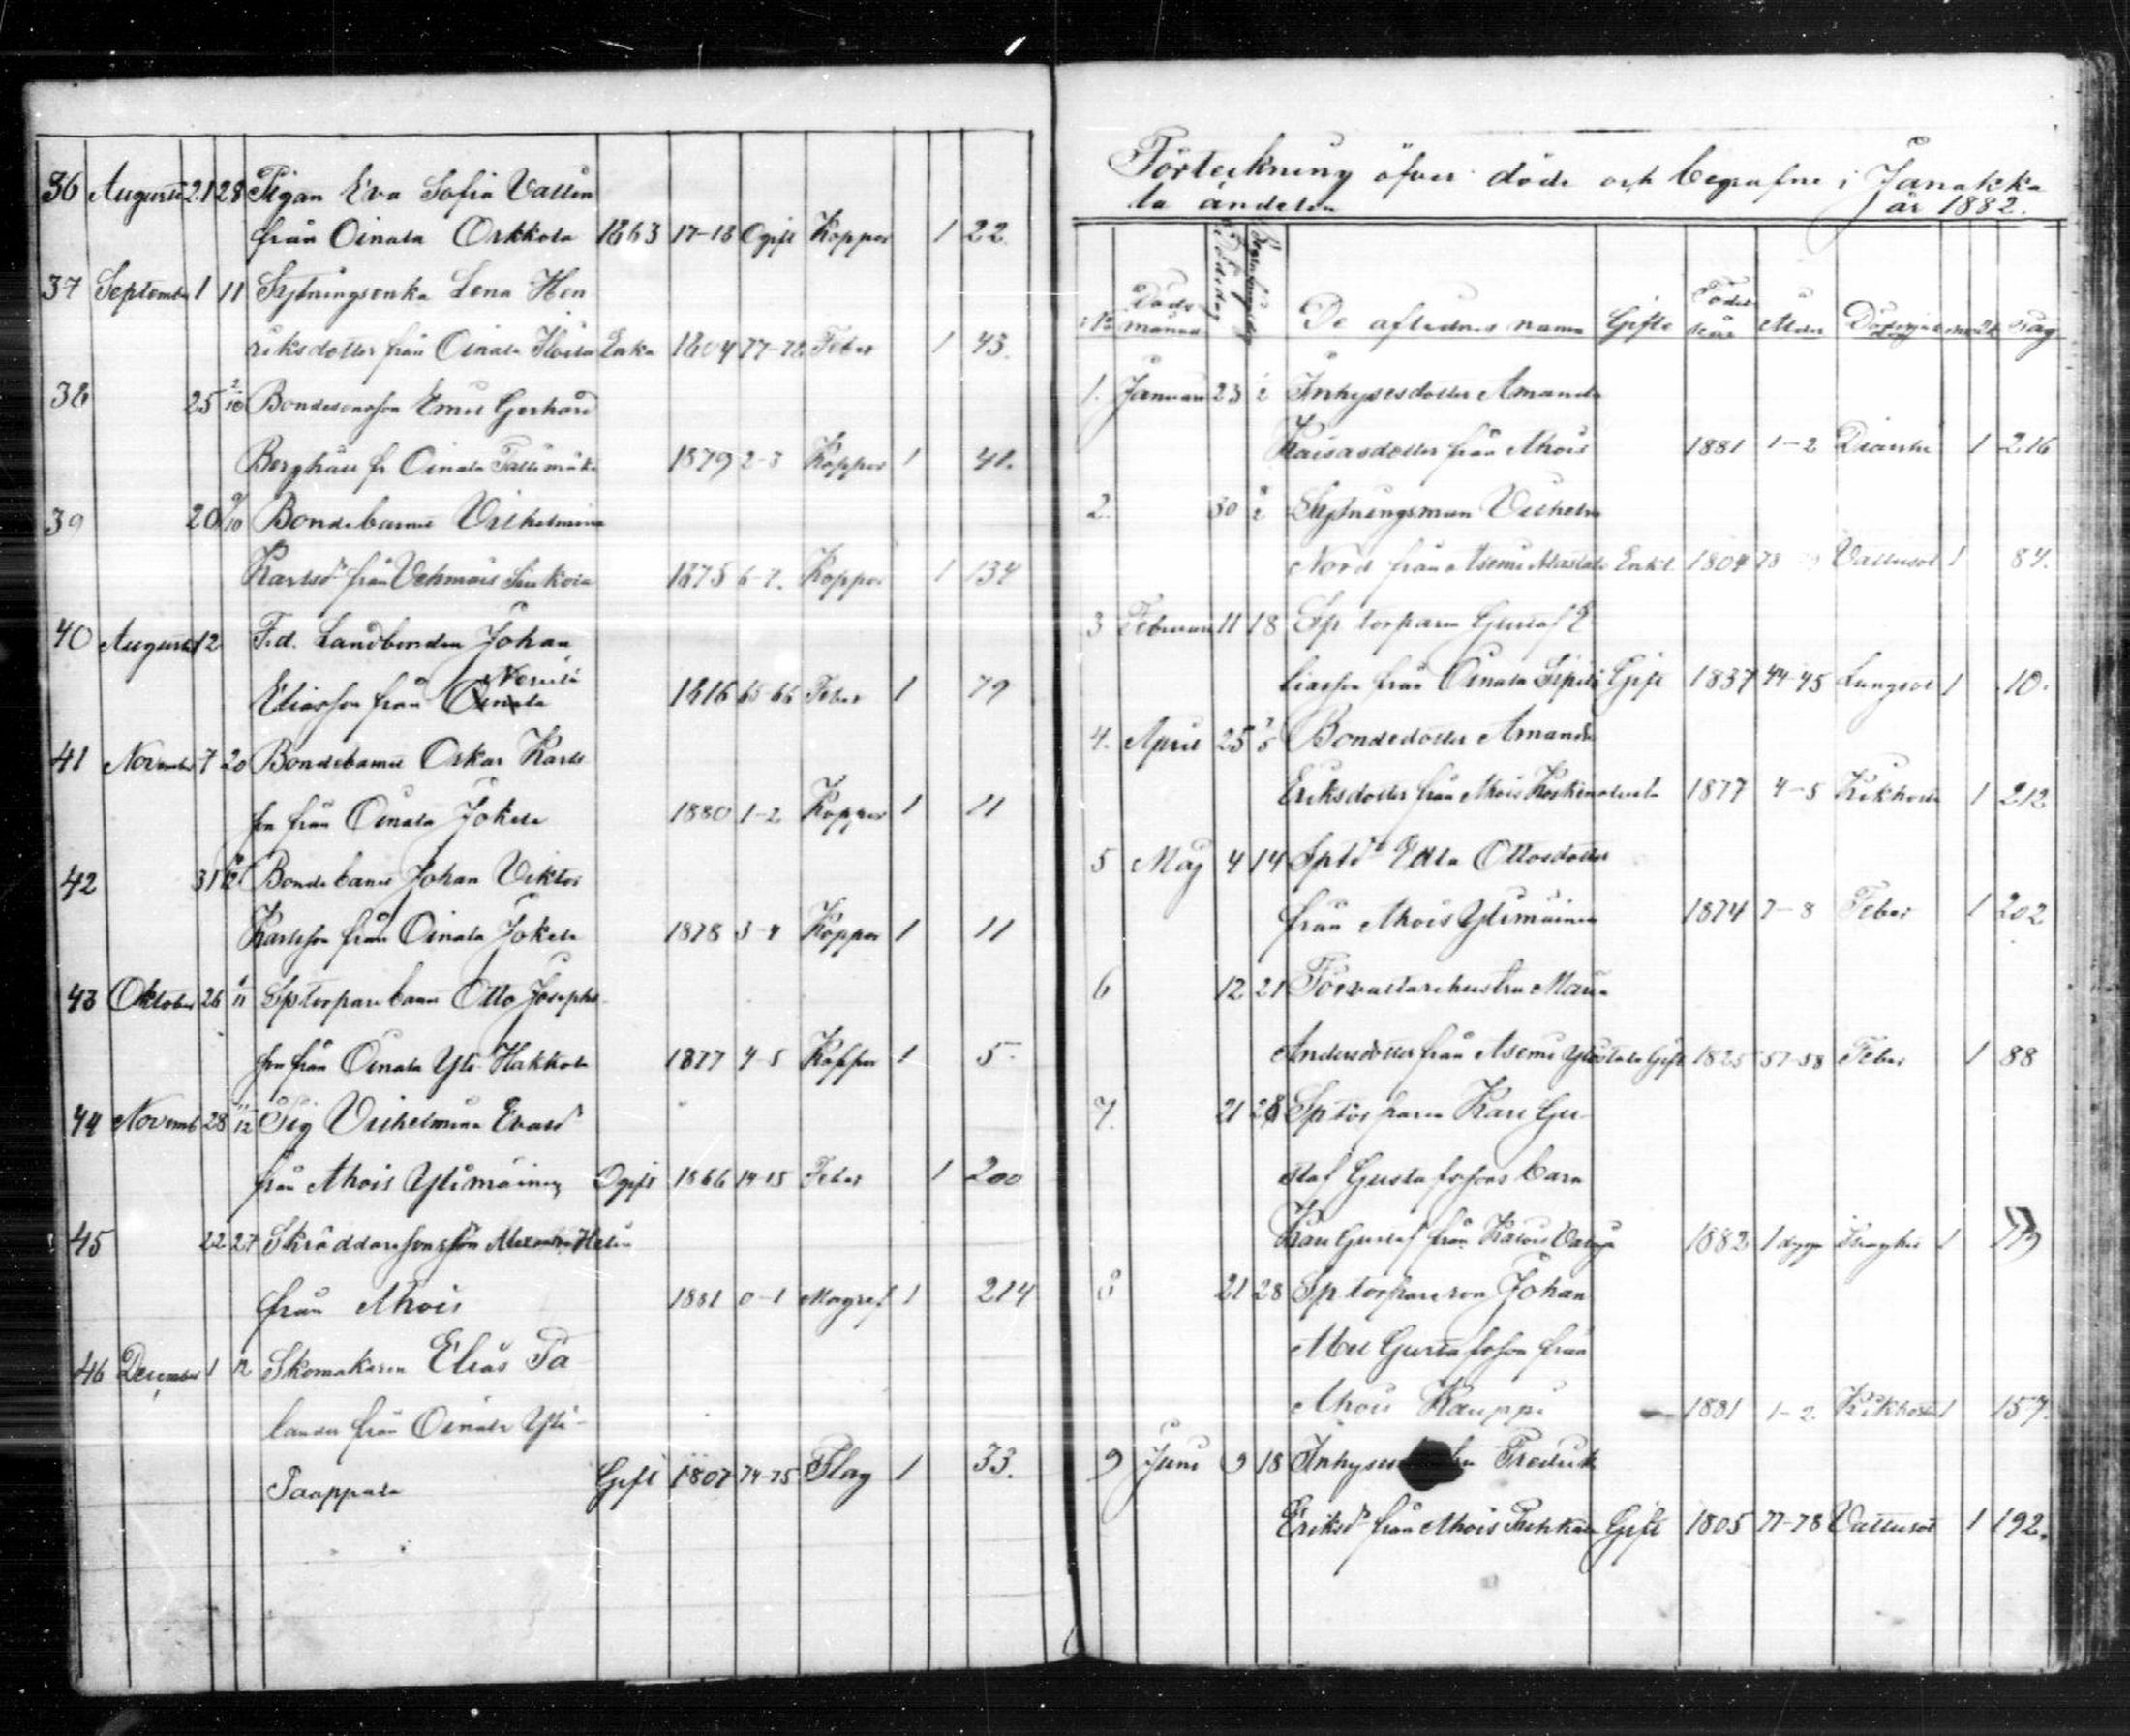 36 Augusti 21 28 Pigan Eva Sofia Vallin
från Oinala Orkkola 1863 17-18 Ogift Koppor 1 22.
37 September 1 11 Sytningsenka Lena Hen
riksdotter från Oinala Enka 1804 77-78 Feber 1 43.
38 25 2/10 Bondesonsson Emil Gerhard
Berghäll fr Oinala 1879 2-3 Koppor 1 41.
39 20 9/10 Bondebarnet Vilhelmina
Karlsdr från 1875 6-7. Koppor 1 134
40 Augusti 12 F.d. Landbonden Johan
Nerula
Eliasson från Oinala 1816 65-66 Feber 1 79
41 November 7 20 Bondebarnet Oskar Karls
son från Oinala Jokela 1880 1-2 Koppor 1 11
42 31 Bondebarnet Johan Viktor
Karlsson från Oinala Jokela 1878 3-4 Koppor 1 11
43 Oktober 26 6/11 Sptorparebarnet Otto Josephs
son från Oinala Yli Hakkola 1877 4-5 Koppor 1 5.
44 Novemb 28 11/12 Pig Vilhelmina Evasdr
från Ahois Ylimäinen Ogift 1866 14-15 Feber 1 200
45 22 27 Skräddaresonsson Alexander Helin
från Ahois 1881 0-1 Magref 1 214
46 December 1 12 Skomakaren Elias Ta
lander från Oinala Yli-
Paappala Gift 1807 74-75 Slag 1 33.
Förteckning öfver döde och begrafne i Janakka
la andelen år 1882.
No Döds månad Dödsdag Begrafningsdag De aflednes namn Gifte Födelseår Ålder Dödssjukdom m. q. Pag
1. Januari 23 Inhysesdotter Amanda
Kaisasdotter från Ahois 1881 1-2 1 216
2. 30 Sytningsman Vilhelm
Nord från Asemi Alastalo Enkl. 1804 78 Vattusot 1 84.
3 Februari 11 18 Sp torparen Gustaf E
liasson från Oinala Gift 1837 44-45 Lungsot 1 10.
4. April 25 Bondedotter Amanda
Eriksdotter från Ahois 1877 4-5 Kikhosta 1 212
5 Maj 4 14 Sptdr Edla Ottosdotter
från Ahois Ylimäinen 1874 7-8 Feber 1 202
6 12 21 Förvaltarehustru Maria
Andersdotter från Asemi Ylöstalo Gift 1825 57-58 Feber 1 88
7. 21 28 Sptorparen Karl Gu-
staf Gustafssons barn
Karl Gustaf från 1882 1 dygn 1
8 21 28 Sp torpareson Johan
Abel Gustafsson från
Ahois Kauppi 1881 1-2 Kikhosta 1 157.
9 Juni 9 18 Fredrik
Eriksdr från Ahois Gift 1805 77-78 Vattusot 1 192.